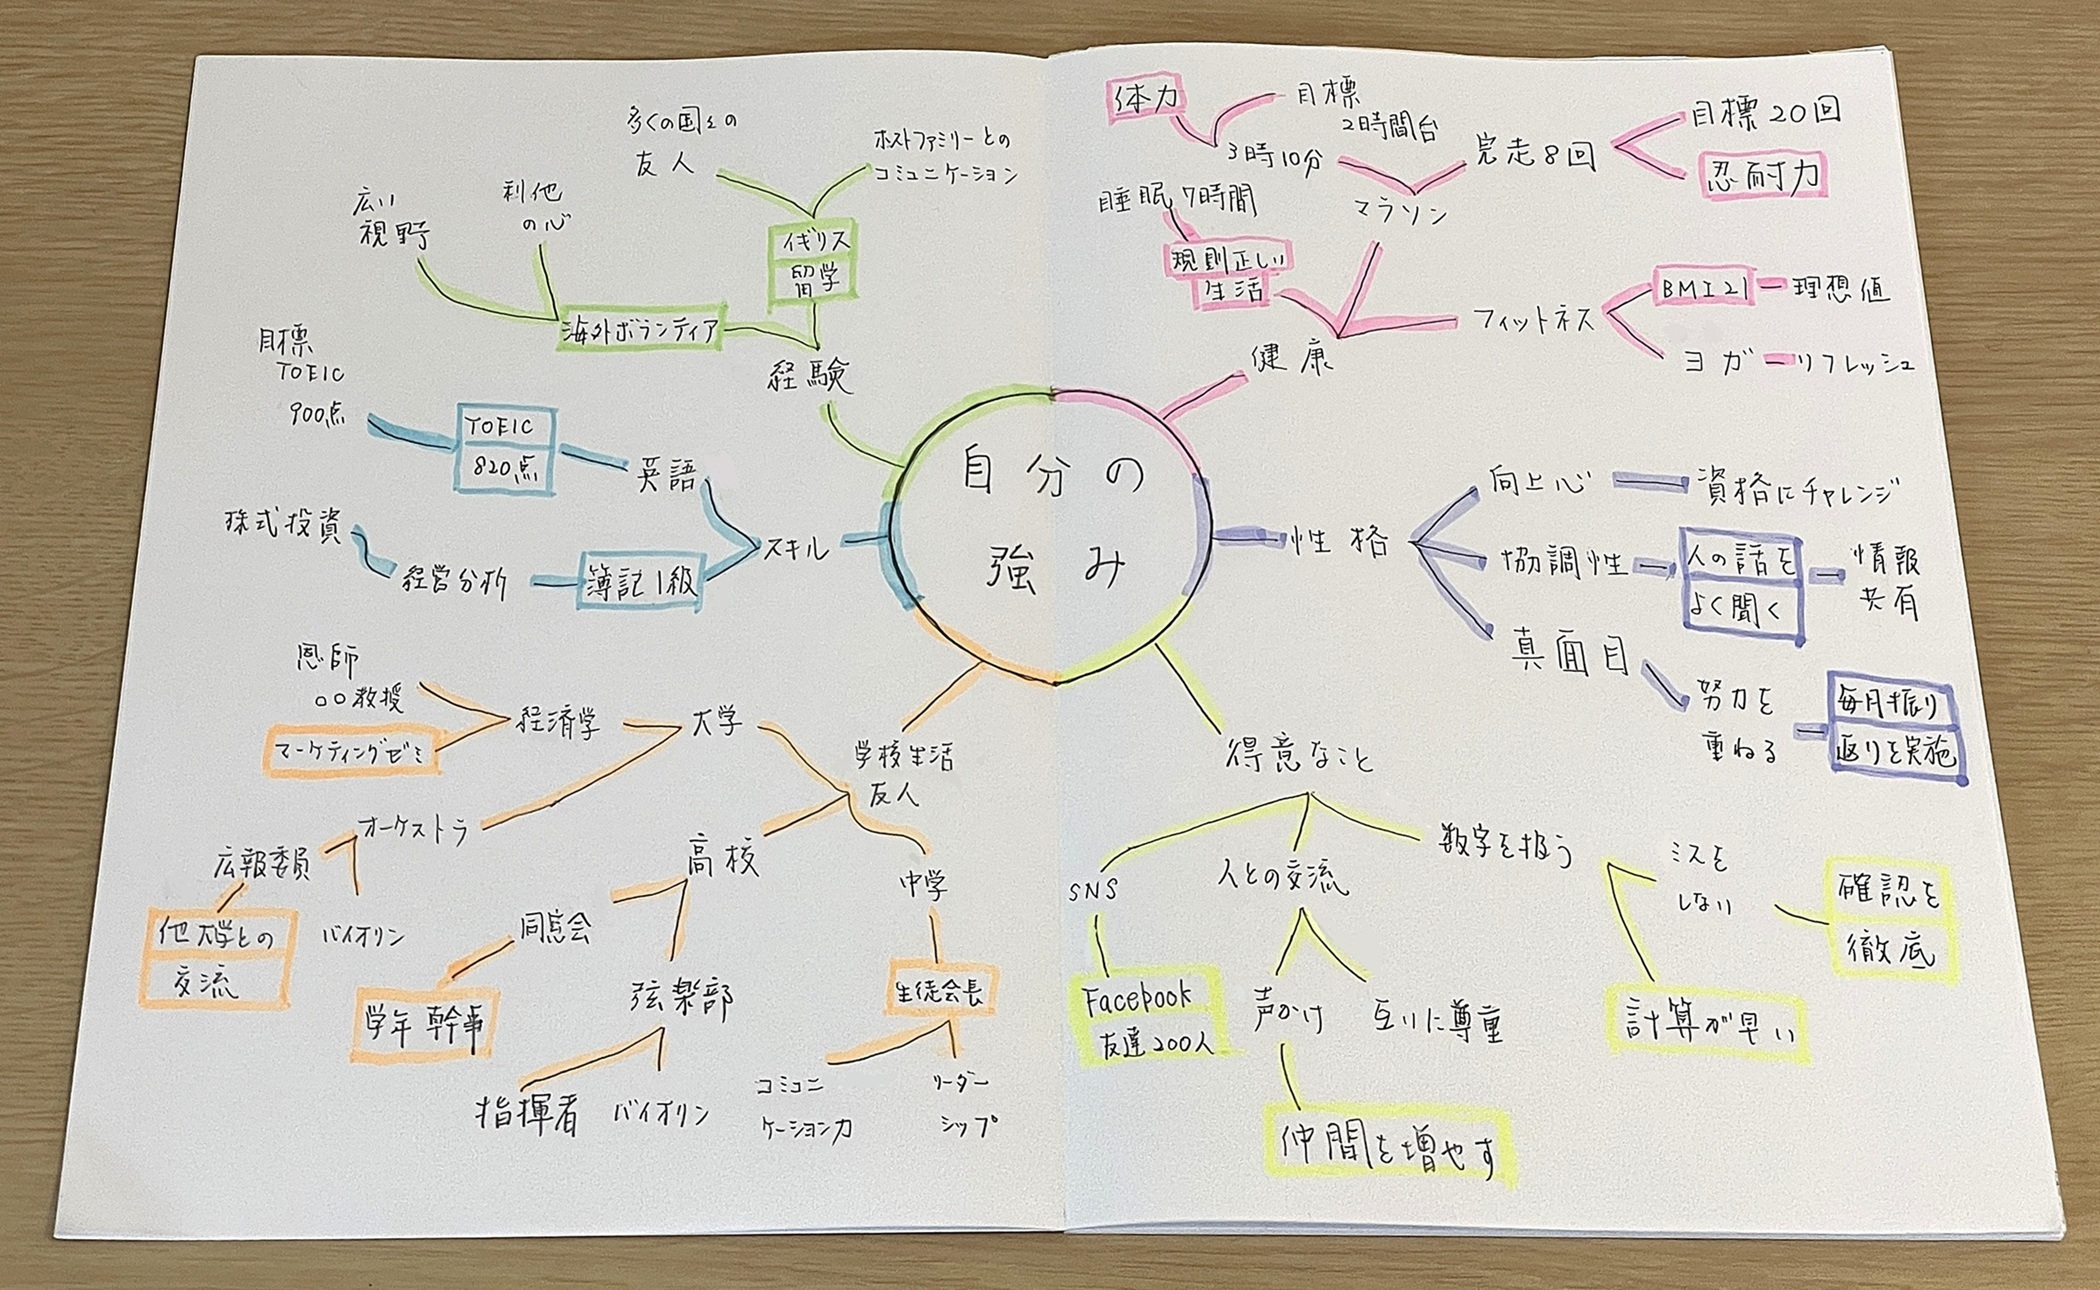 自分の
強み
経験
イギリス
留学
多くの国々の
友人
ホストファミリーとの
コミュニケーション
海外ボランティア
利他
の心
広い
視野
健康
マラソン
3時10分
体力
目標
2時間台
完走8回
目標20回
忍耐力
規則正しい
生活
睡眠7時間
フィットネス
BMI21
理想値
ヨガ
リフレッシュ
スキル
英語
TOEIC
820点
目標
TOEIC
900点
簿記1級
経営分析
株式投資
性格
向上心
資格にチャレンジ
協調性
人の話を
よく聞く
情報
共有
真面目
努力を
重ねる
毎月振り
返りを実施
学校生活
友人
大学
経済学
恩師
○○教授
マーケティングゼミ
オーケストラ
広報委員
他大学との
交流
バイオリン
高校
同窓会
学年幹事
弦楽部
指揮者
バイオリン
中学
生徒会長
コミュニ
ケーション力
リーダー
シップ
得意なこと
SNS
Facebook
友達200人
人との交流
声かけ
仲間を増やす
互いに尊重
数字を扱う
ミスを
しない
確認を
徹底
計算が早い